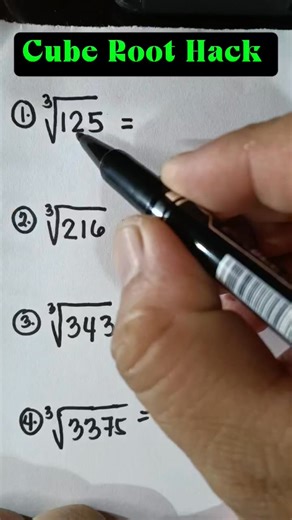 Cube Root Hack
①. ∛125 =
②. ∛216
③. ∛343
④. ∛3375 =